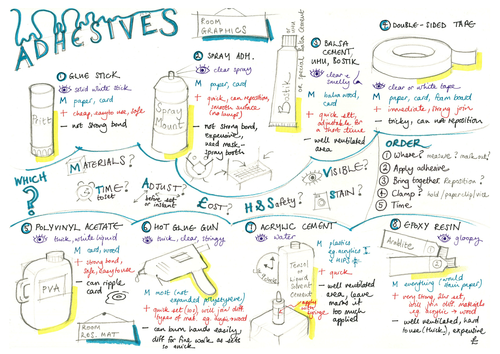 ADHESIVES
ROOM
GRAPHICS
① GLUE STICK
solid white stick
M paper, card
+ cheap, easy to use, safe
- not strong bond
Pritt
② SPRAY ADH.
clear spray
M paper, card
+ quick, can reposition,
smooth surface
(no lumps)
- not strong bond,
expensive,
need mask -
spray booth
Spray
Mount
Bostik
or UHU
or special Balsa Cement
③ BALSA
CEMENT,
UHU, BOSTIK
clear &
smelly
M balsa wood,
card
+ quick set,
adjustable for
a short time
- well ventilated
area
④ DOUBLE-SIDED TAPE
clear or white tape
M paper, card, foam board
+ immediate, strong join
- tricky, can not reposition
ORDER
① Where? measure? mark out?
② Apply adhesive
③ Bring together Reposition?
④ Clamp? hold/paperclip/vice
⑤ Time
WHICH
?
MATERIALS?
TIME?
to set
ADJUST?
before set
or instant
£OST?
H&Safety?
VISIBLE?
STAIN?
⑤ POLYVINYL ACETATE
thick, white liquid
M card, wood
+ strong bond,
safe, easy to use
- can ripple
card
PVA
ROOM
RES. MAT
⑥ HOT GLUE GUN
thick, clear, stringy
M most (not
expanded polystyrene)
+ quick set (10s), will join diff.
types of mat. eg acrylic & wood
- can burn hands easily,
diff for fine work as sets
so quick
⑦ ACRYLIC CEMENT
water
M plastics
eg acrylic &
HIPS
+ quick
- well ventilated
area, leave
marks if
too much
applied
Tensol or
Liquid
Solvent
Cement
apply
with
syringe
⑧ EPOXY RESIN
gloopy
Araldite
M everything (would
stain paper)
+ very strong, 24hr set,
will join diff. materials
eg acrylic → wood
- well ventilated, hard
to use (thick), expensive
£